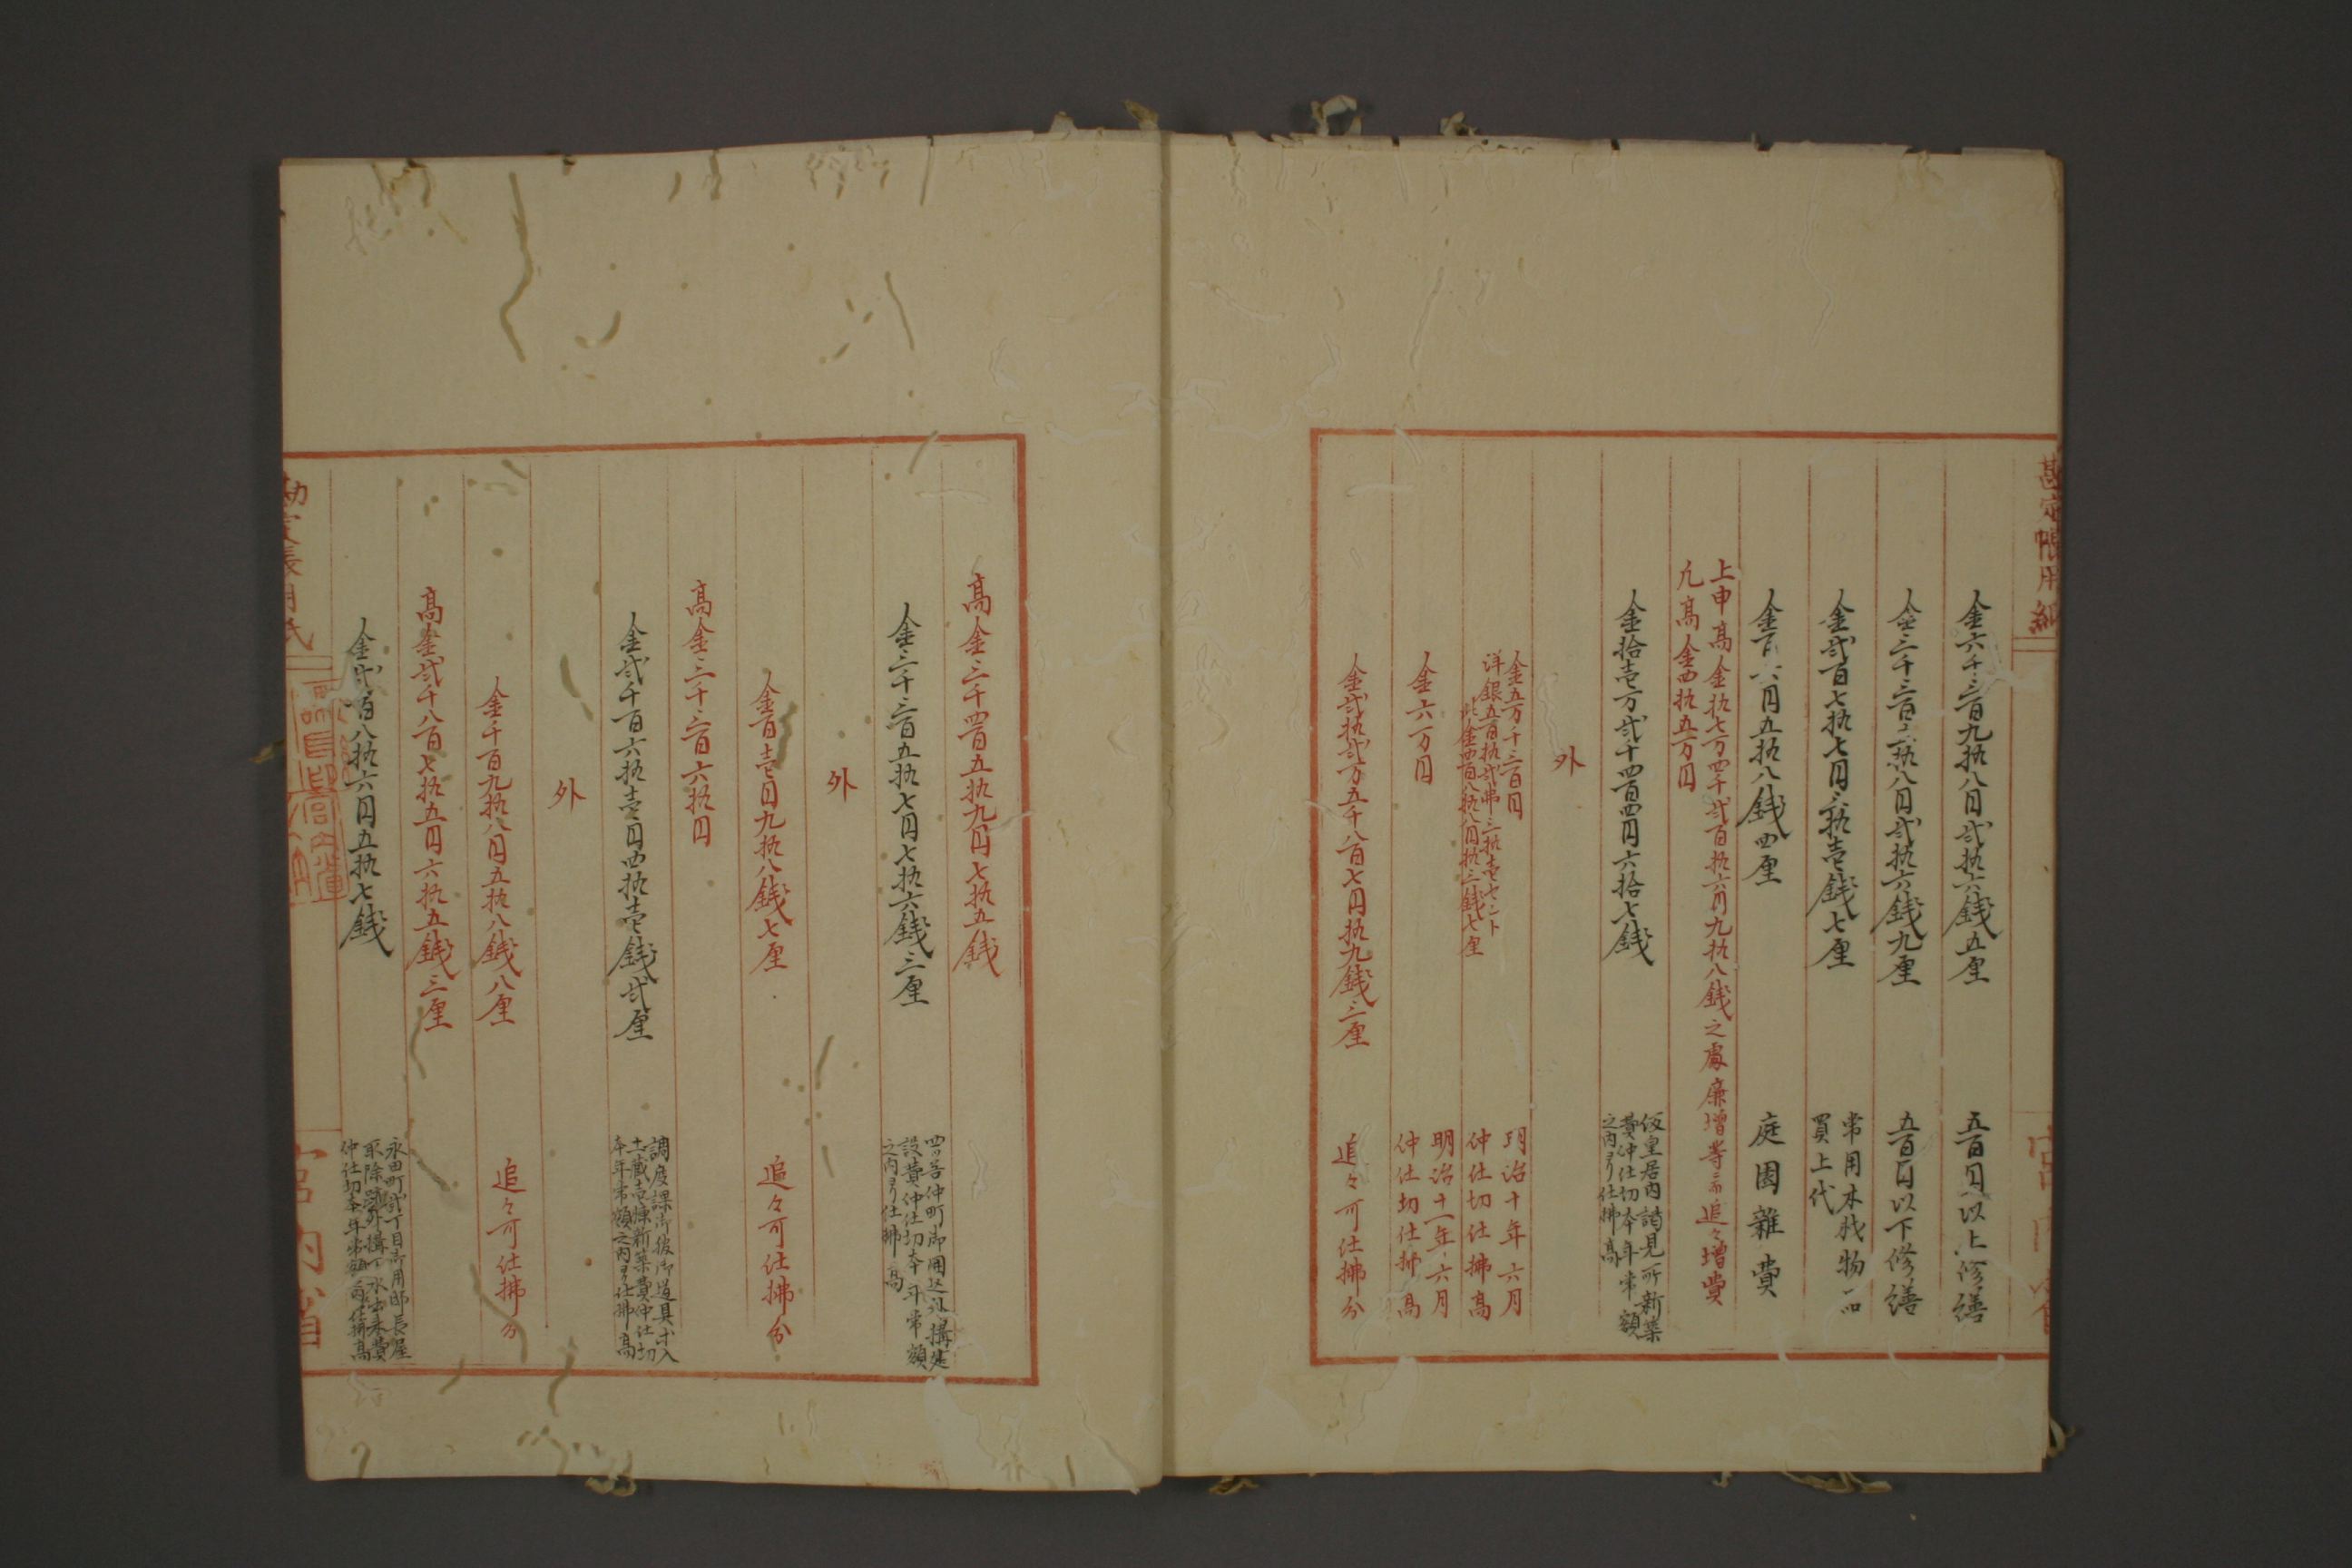 勘定帳用紙
金六千三百九拾八円弐拾六銭五厘
五百円以上修繕
金三千三百六拾八円弐拾六銭九厘
五百円以下修繕
金弐百七拾七円三拾壱銭七厘
常用木成物品
買上代
金百六円五拾八銭四厘
庭園雑費
上申高金拾七万四千弐百拾六円九拾八銭之處廉増等ニ而追々増費
凡高金四拾五万円
金拾壱万弐千四百四円六拾七銭
仮皇居内謁見所新築
費仲仕切本年常額
之内ヨリ仕拂高
外
金五万千三百円
洋銀五百拾弐弗三拾壱セント
此金四百八拾八円拾三銭七厘
明治十年六月
仲仕切仕拂高
金六万円
明治十一年六月
仲仕切仕拂高
金弐拾弐万五千八百七円拾九銭三厘
追々可仕拂分
高金三千四百五拾九円七拾五銭
金三千三百五拾七円七拾六銭三厘
設費仲仕切本年常額
之内ヨリ仕拂高
外
金百壱円九拾八銭七厘
追々可仕拂分
高金三千三百六拾円
金弐千百六拾壱円四拾壱銭弐厘
調度課御後御道具才入
土蔵壱棟新築費仲仕切
本年常額之内ヨリ仕拂高
外
金千百九拾八円五拾八銭八厘
追々可仕拂分
高金弐千八百七拾五円六拾五銭三厘
金弐百八拾六円五拾七銭
永田町弐丁目御用邸長屋
宮内省